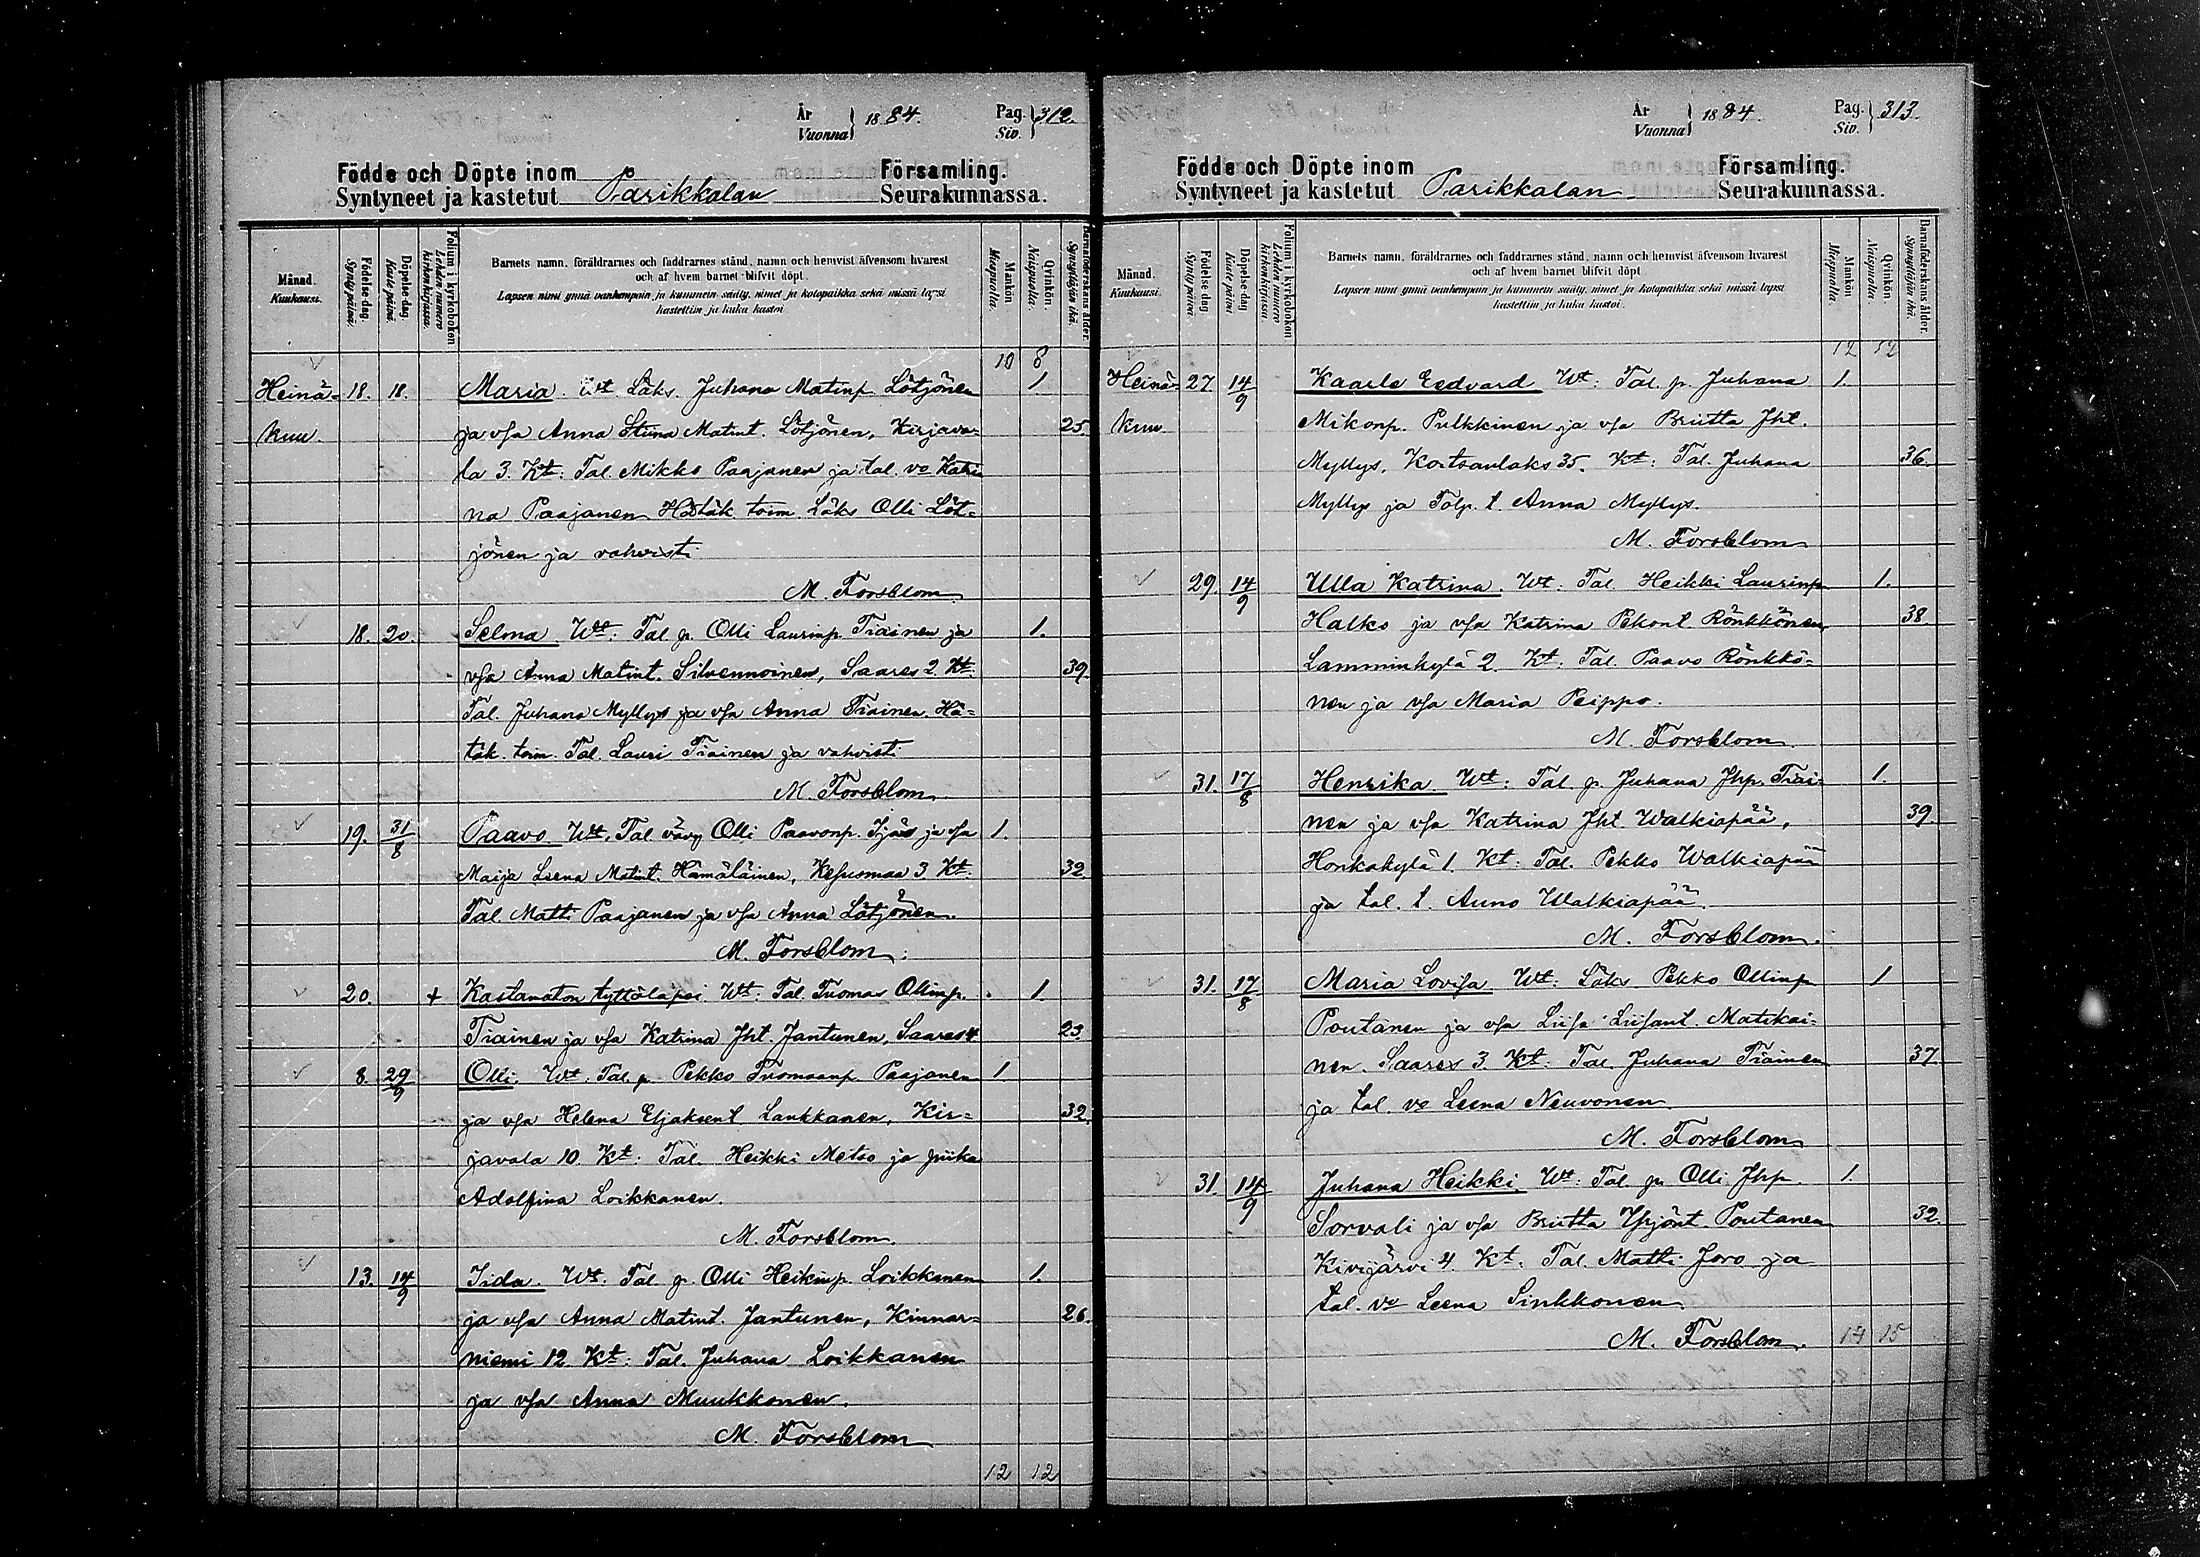 År
Vuonna } 1884.
Pag.
Siv. } 312.
Födde och Döpte inom Församling.
Syntyneet ja kastetut Parikkalan Seurakunnassa.
Månad. Kuukausi.
Födelse-dag. Synty päivä.
Döpelse-dag. Kaste päivä.
Folium i kyrkoboken Lehden numero kirkonkirjassa.
Barnets namn, föräldrarnes och faddrarnes stånd, namn och hemvist äfvensom hvarest
och af hvem barnet blifvit döpt.
Lapsen nimi ynnä vanhempain ja kummein sääty, nimet ja kotopaikka sekä missä lapsi
kastettiin ja kuka kastoi.
Mankön Miespuolia.
Qvinkön. Naispuolia.
Barnaföderskans ålder. Synnyttäjän ikä.
10 8
Heinä- 18. 18. Maria Wt. Läks. Juhana Matinp Lötjönen 1.
kuu ja vsa Anna Stiina Matint. Lötjönen, Kirjava- 25.
la 3. Kt: Tal. Mikko Paajanen ja tal. vo Katri
na Paajanen Hätäk toim. Läks Olli Löt-
jönen ja vahvisti
M. Forsblom
18. 20 Selma Wt: Tal p. Olli Laurinp. Tiainen ja 1.
vsa Anna Matint. Silvennoinen, Saares 2. Kt. 39.
Tal. Juhana Myllys ja vsa Anna Tiainen. Hä-
täk. toim. Tal. Lauri Tiainen ja vahvisti
M. Forsblom
19. 31/8 Paavo Wt. Tal vävy Olli Paavonp. Ijäs ja vsa 1.
Maija Leena Matint. Hämäläinen, Kesusmaa 3 Kt. 32.
Tal. Matti Paajanen ja vsa Anna Lötjönen.
M. Forsblom.
20. + Kastamaton tyttölapsi Wt: Tal. Tuomas Ollinp. 1.
Tiainen ja vsa Katrina Jht. Jantunen, Saares 4 23.
8. 29/9 Olli. Wt. Tal. p. Pekko Tuomaanp. Paajanen 1.
ja vsa Helena Eljaksent. Laukkanen, Kir- 32.
javala 10. Kt: Tal. Heikki Metso ja piika
Adolfina Loikkanen.
M. Forsblom.
13. 14/9 Iida. Wt. Tal p. Olli Heikinp. Loikkanen 1.
ja vsa Anna Matint. Jantunen, Kinnar- 26.
niemi 12 Kt: Tal. Juhana Loikkanen
ja vsa Anna Muukkonen.
M. Forsblom
12 12
År
Vuonna } 1884.
Pag.
Siv. } 313.
Födde och Döpte inom Församling.
Syntyneet ja kastetut Parikkalan Seurakunnassa.
Månad. Kuukausi.
Födelse-dag Synty päivä
Döpelse-dag Kaste päivä
Folium i kyrkoboken Lehden numero kirkonkirjassa
Barnets namn, föräldrarnes och faddrarnes stånd, namn och hemvist äfvensom hvarest
och af hvem barnet blifvit döpt
Lapsen nimi ynnä vanhempain ja kummein sääty, nimet ja kotopaikka sekä missä lapsi
kastettiin ja kuka kastoi.
Mankön Miespuolia.
Qvinkön. Naispuolia.
Barnaföderskans ålder. Synnyttäjän ikä.
12 12
Heinä- 27 14/9 Kaarle Eedvard Wt: Tal. p. Juhana 1.
kuu Mikonp. Pulkkinen ja vsa Briitta Jht.
Myllys, Koitsanlaks 35. Kt: Tal. Juhana 36.
Myllys ja Talp. t. Anna Myllys.
M. Forsblom
29. 14/9 Ulla Katrina. Wt: Tal. Heikki Laurinp 1.
Halko ja vsa Katrina Pekont Rönkkönen, 38
Lamminkylä 2. Kt: Tal. Paavo Rönkkö-
nen ja vsa Maria Peippo.
M. Forsblom
31. 17/8 Henrika Wt: Tal. p. Juhana Jhp. Tiai- 1.
nen ja vsa Katrina Jht. Walkiapää, 39.
Honkakylä 1. Kt: Tal. Pekko Walkiapää
ja tal. t. Anna Walkiapää.
M. Forsblom.
31. 17/8 Maria Lovisa Wt: Läks Pekko Ollinp 1
Poutanen ja vsa Liisa Liisant. Matikai-
nen. Saares 3. Kt: Tal. Juhana Tiainen 37
ja tal. vo Leena Neuvonen
M. Forsblom
31. 14/9 Juhana Heikki. Wt: Tal p. Olli Jhp. 1.
Sorvali ja vsa Briitta Yrjönt. Poutanen 32.
Kivijärvi 4 Kt: Tal. Matti Joro ja
tal. vo Leena Sinkkonen
M. Forsblom. 14 15